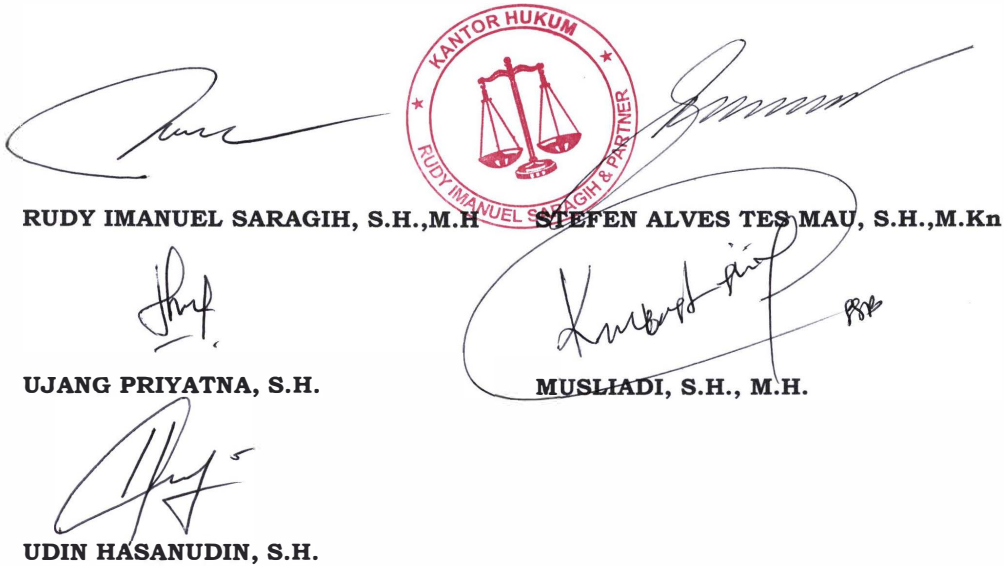 KANTOR HUKUM
RUDY IMANUEL SARAGIH & PARTNER
RUDY IMANUEL SARAGIH, S.H.,M.H
STEFEN ALVES TES MAU, S.H.,M.Kn
UJANG PRIYATNA, S.H.
MUSLIADI, S.H., M.H.
UDIN HASANUDIN, S.H.